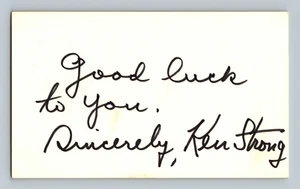 Good luck
to you.
Sincerely, Ken Strong